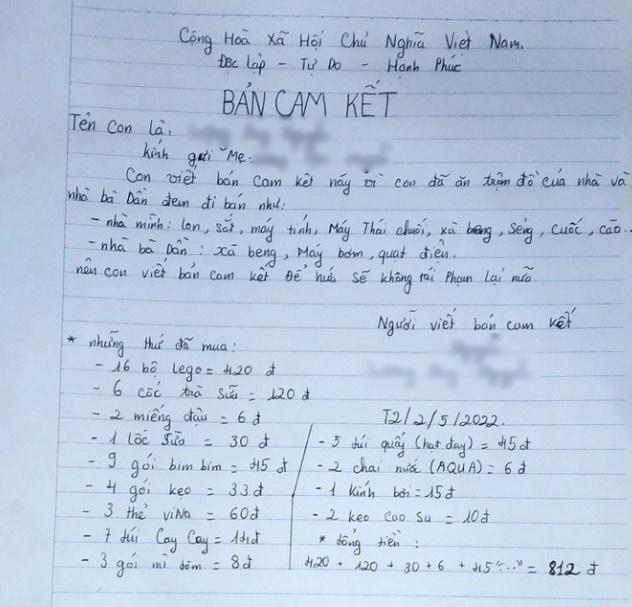 Cộng Hoà Xã Hội Chủ Nghĩa Việt Nam.
Độc lập - Tự Do - Hạnh Phúc
BẢN CAM KẾT
Tên Con là:
kính gửi Mẹ:
Con viết bản cam kết này vì con đã ăn trộm đồ của nhà và
nhà bà Dần đem đi bán như:
- nhà mình: lon, sắt, máy tính, Máy Thái chuối, xà beng, sẻng, cuốc, cào...
- nhà bà Dần: xà beng, Máy bơm, quạt điện.
nên con viết bản cam kết Để hứa sẽ không tái Phạm lại nữa
Người viết bản cam kết
* những thứ đã mua:
- 16 bộ lego = 420 đ
- 6 cốc trà sữa = 120 đ
- 2 miếng đậu = 6 đ
- 1 lốc sữa = 30 đ
- 9 gói bim bim = 45 đ
- 4 gói kẹo = 33 đ
- 3 thẻ viNa = 60 đ
- 7 túi Cay Cay = 14 đ
- 3 gói mì tôm = 8 đ
T2/2/5/2022.
- 5 túi quẩy (hạt đay) = 45 đ
- 2 chai nước (AQUA) = 6 đ
- 1 kính bơi = 15 đ
- 2 kẹo cao su = 10 đ
* tổng tiền:
420 + 120 + 30 + 6 + 45 "..." = 812 đ